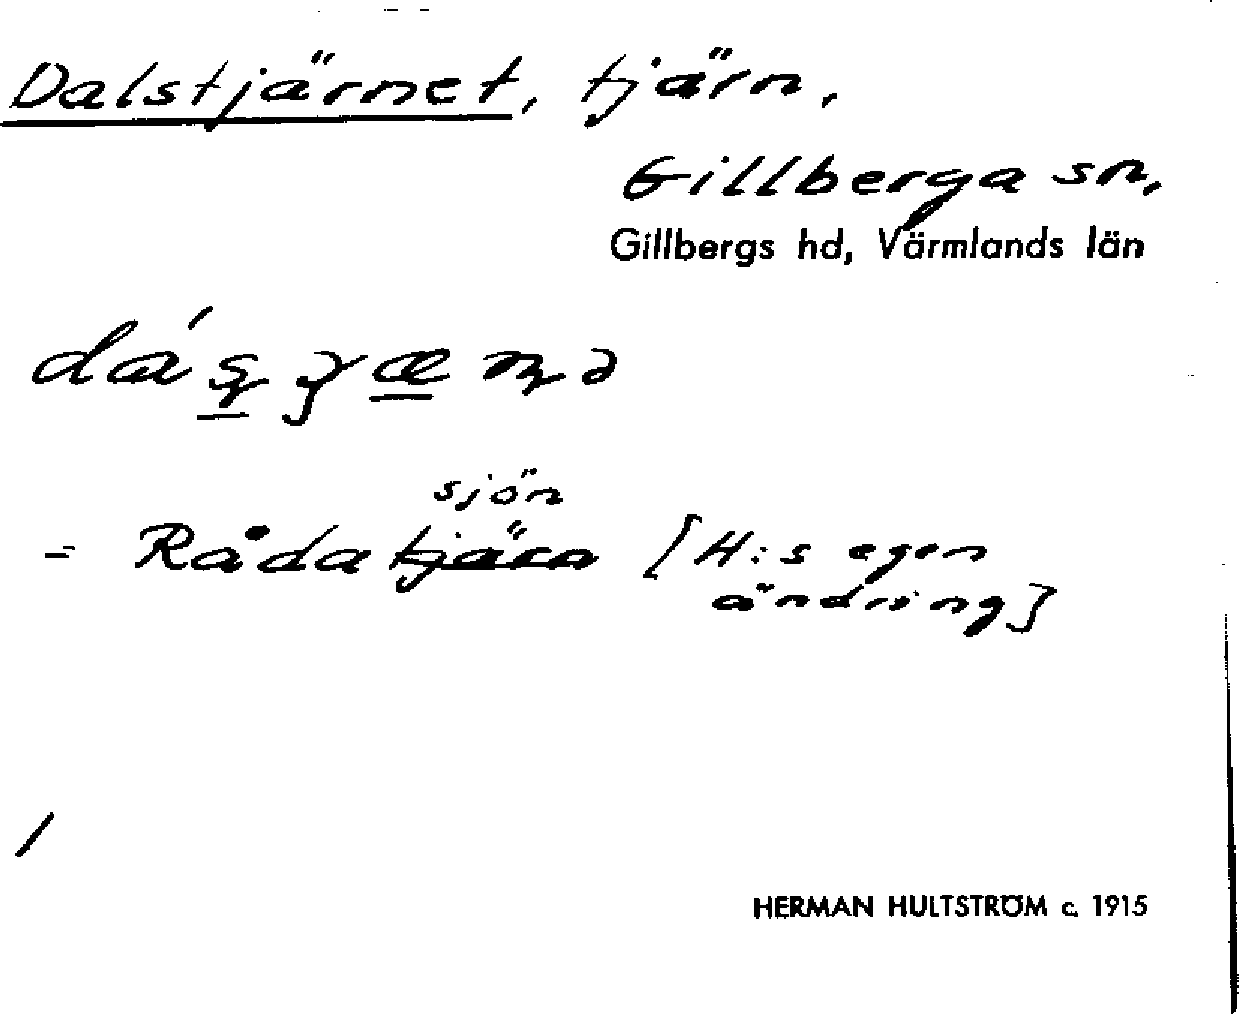 Dalstjärnet, tjärn,
Gillberga sn,
Gillbergs hd, Värmlands län
sjön
= Råda tjärn [H:s egen
ändring]
/
HERMAN HULTSTRÖM c. 1915